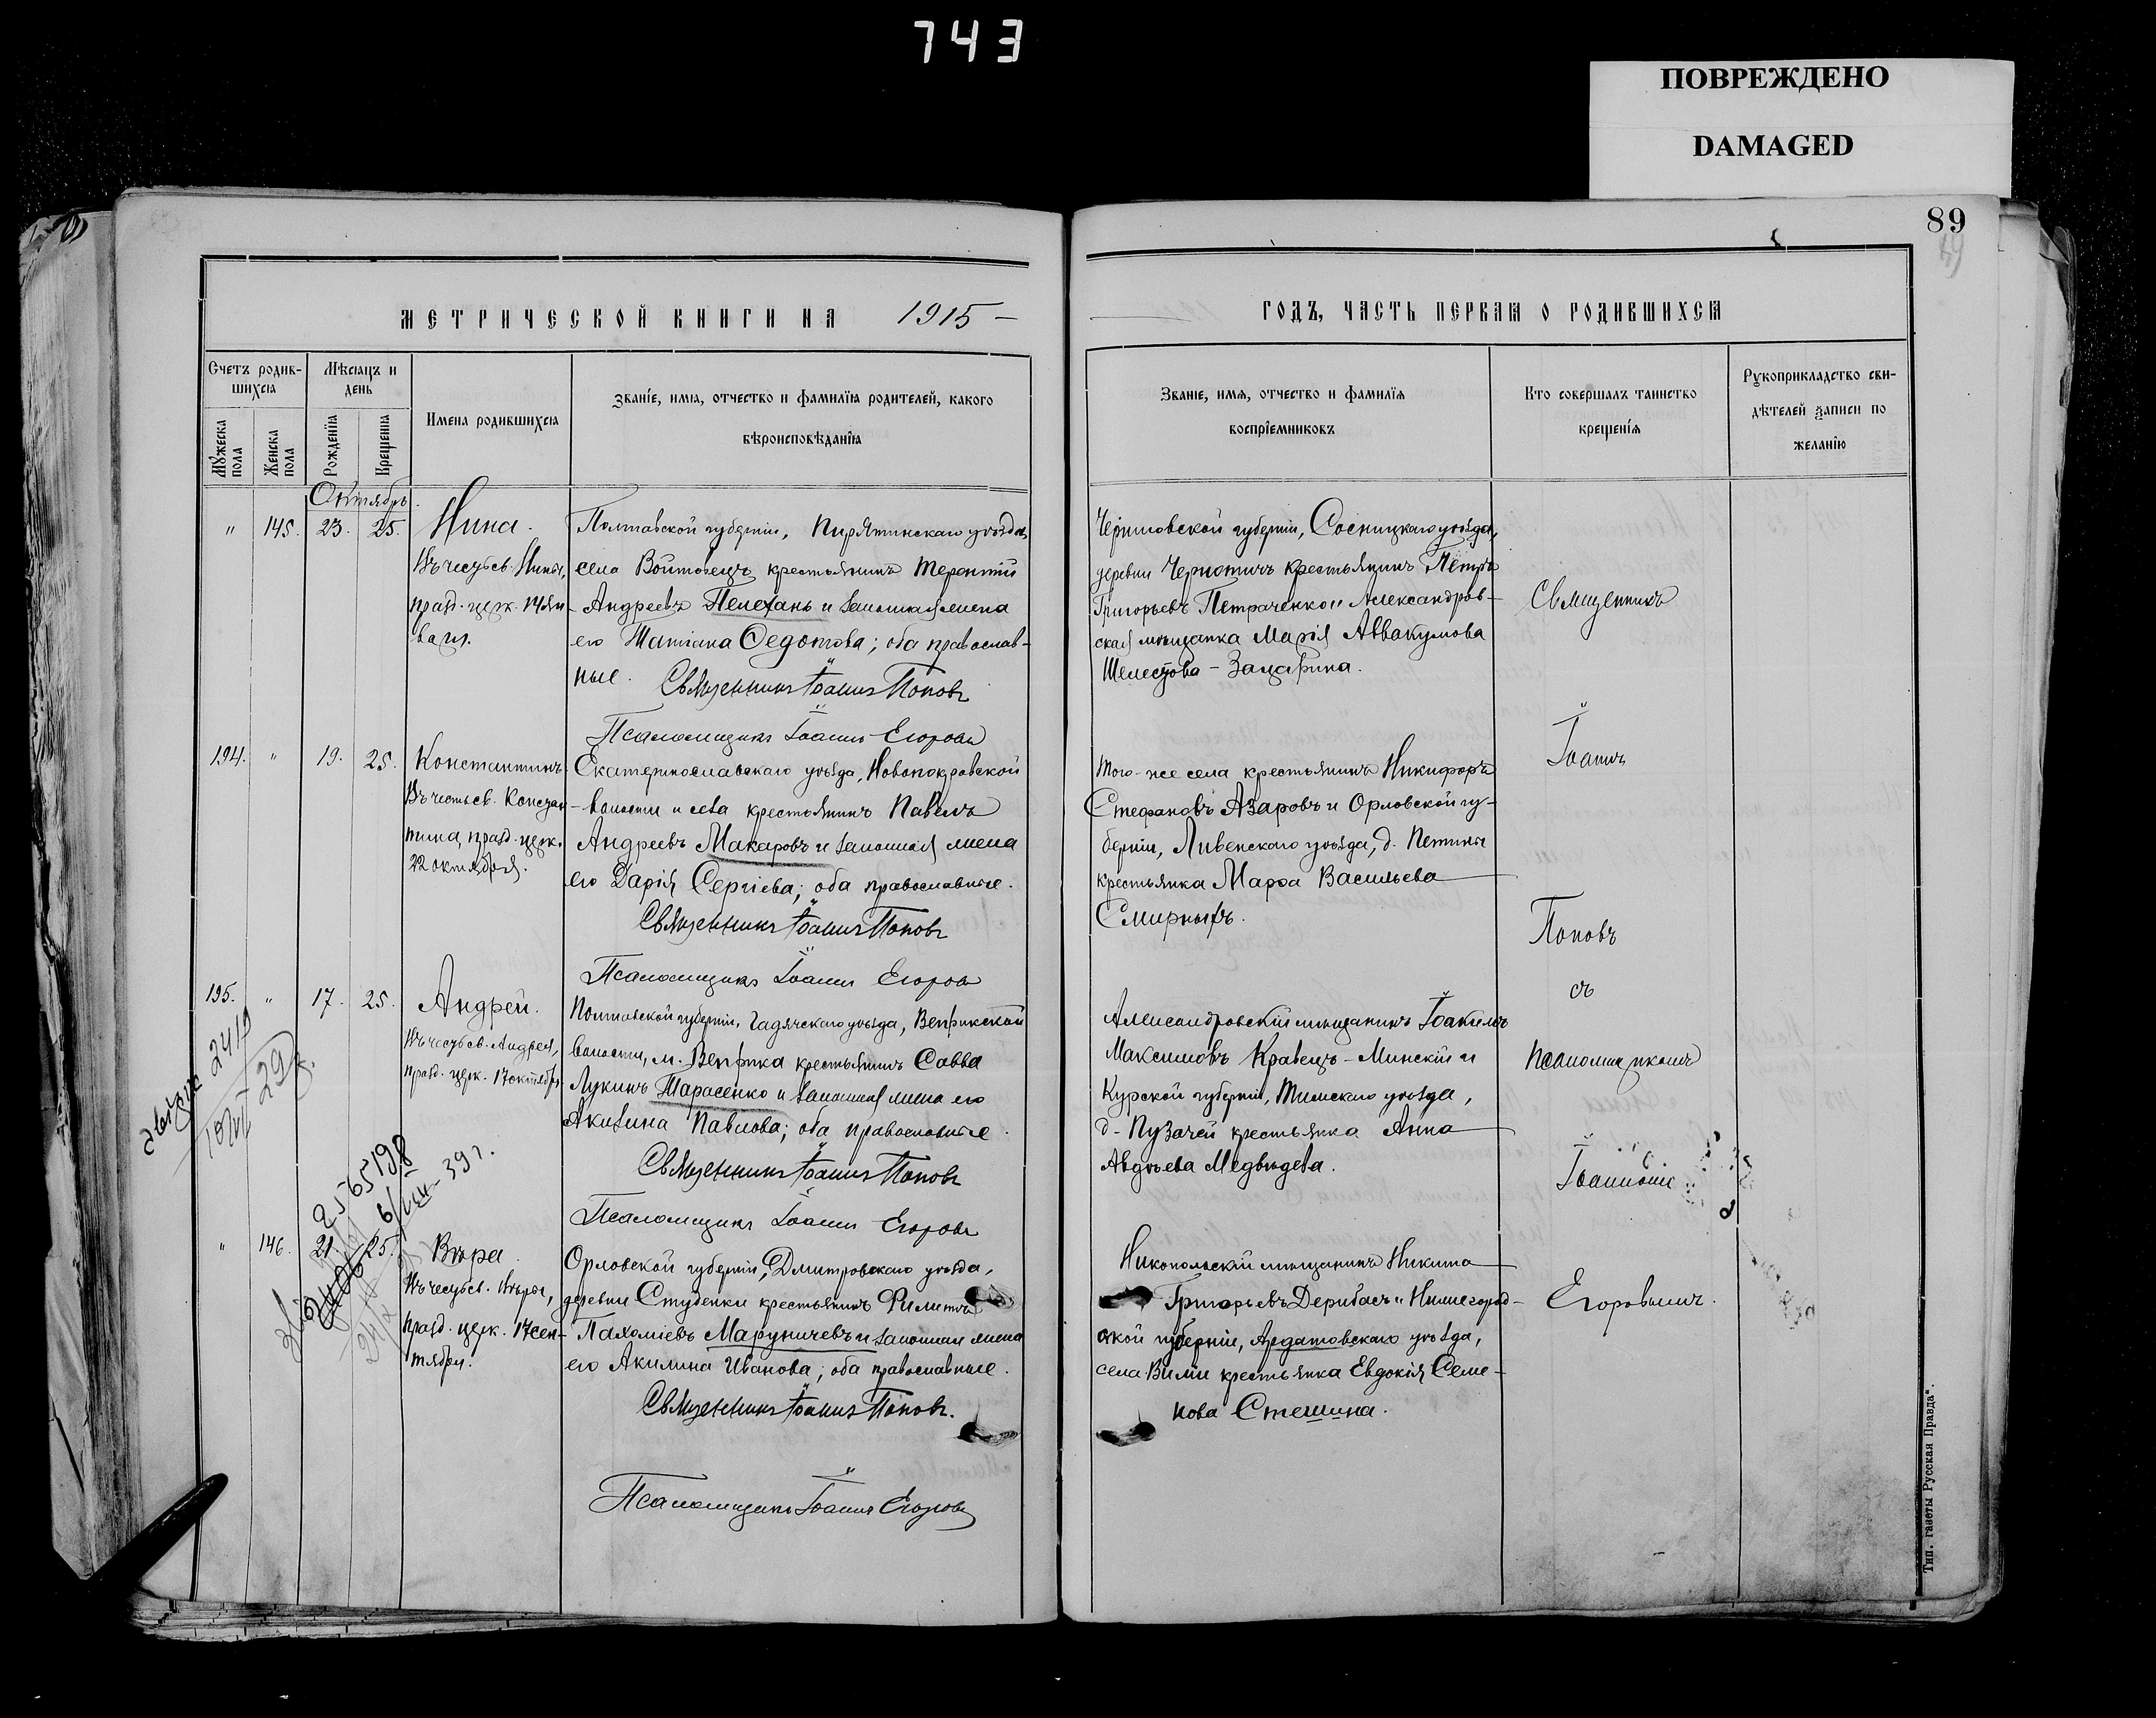 743
ПОВРЕЖДЕНО
DAMAGED
89
МЕТРИЧЕСКОЙ КНИГИ НА 1915 —
Счетъ родив-
шихся
Мѣсяцъ и
день
Мужеска
пола
Женска
пола
Рожденїя
Крещенїя
Имена родившихся
Званїе, имя, отчество и фамилїя родителей, какого
вѣроисповѣданїя
Октябрь
" 145. 23. 25.
Нина.
Въ честь св. Нины,
празд. церк. 14 ян-
варя.
Полтавской губерніи, Пирятинскаго уѣзда,
села Войтовецъ крестьянинъ Терентій
Андреевъ Пелехань и законная жена
его Татіана Федотова; оба православ-
ные.
Священникъ Іоаннъ Поповъ
Псаломщикъ Іоаннъ Егоровъ
194. " 19. 25.
Константинъ.
Въ честь св. Констан-
тина, празд. церк.
22 октября.
Екатеринославскаго уѣзда, Новопокровской
волости и села крестьянинъ Павелъ
Андреевъ Макаровъ и законная жена
его Дарія Сергіева; оба православные.
Священникъ Іоаннъ Поповъ
Псаломщикъ Іоаннъ Егоровъ
195. " 17. 25.
Андрей.
Въ честь св. Андрея,
празд. церк. 17 октября.
Полтавской губерніи, Гадячскаго уѣзда, Веприкской
волости, м. Веприка крестьянинъ Савва
Лукинъ Тарасенко и законная жена его
Акилина Павлова; оба православные.
Священникъ Іоаннъ Поповъ
Псаломщикъ Іоаннъ Егоровъ
" 146. 21. 25.
Вѣра.
Въ честь св. Вѣры,
празд. церк. 17 сен-
тября.
Орловской губерніи, Дмитровскаго уѣзда,
деревни Студенки крестьянинъ Филиппъ
Пахоміевъ Маруничевъ и законная жена
его Акилина Иванова; оба православные.
Священникъ Іоаннъ Поповъ.
Псаломщикъ Іоаннъ Егоровъ
ГОДЪ, ЧАСТЬ ПЕРВАЯ О РОДИВШИХСЯ
Званїе, имя, отчество и фамилїя
воспрїемниковъ
Кто совершалъ таинство
крещенїя
Рукоприкладство сви-
дѣтелей записи по
желанїю
Черниговской губерніи, Сосницкаго уѣзда,
деревни Чернотичъ крестьянинъ Петръ
Григорьевъ Петраченко и Александров-
ская мѣщанка Марія Аввакумова
Шелестова-Зацарина.
Того-же села крестьянинъ Никифоръ
Стефановъ Азаровъ и Орловской гу-
берніи, Ливенскаго уѣзда, д. Петины
крестьянка Марѳа Васильева
Смирныхъ.
Александровскій мѣщанинъ Іоакимъ
Максимовъ Кравецъ-Минскій и
Курской губерніи, Тимскаго уѣзда,
д. Пузачей крестьянка Анна
Авдѣева Медвѣдева.
Никопольскій мѣщанинъ Никита
Григорьевъ Дерибасъ и Нижегород-
ской губерніи, Ардатовскаго уѣзда,
села крестьянка Евдокія Семе-
нова Стешина.
Священникъ
Іоаннъ
Поповъ
съ
псаломщикомъ
Іоанномъ
Егоровымъ.
Тип. газеты Русская Правда".